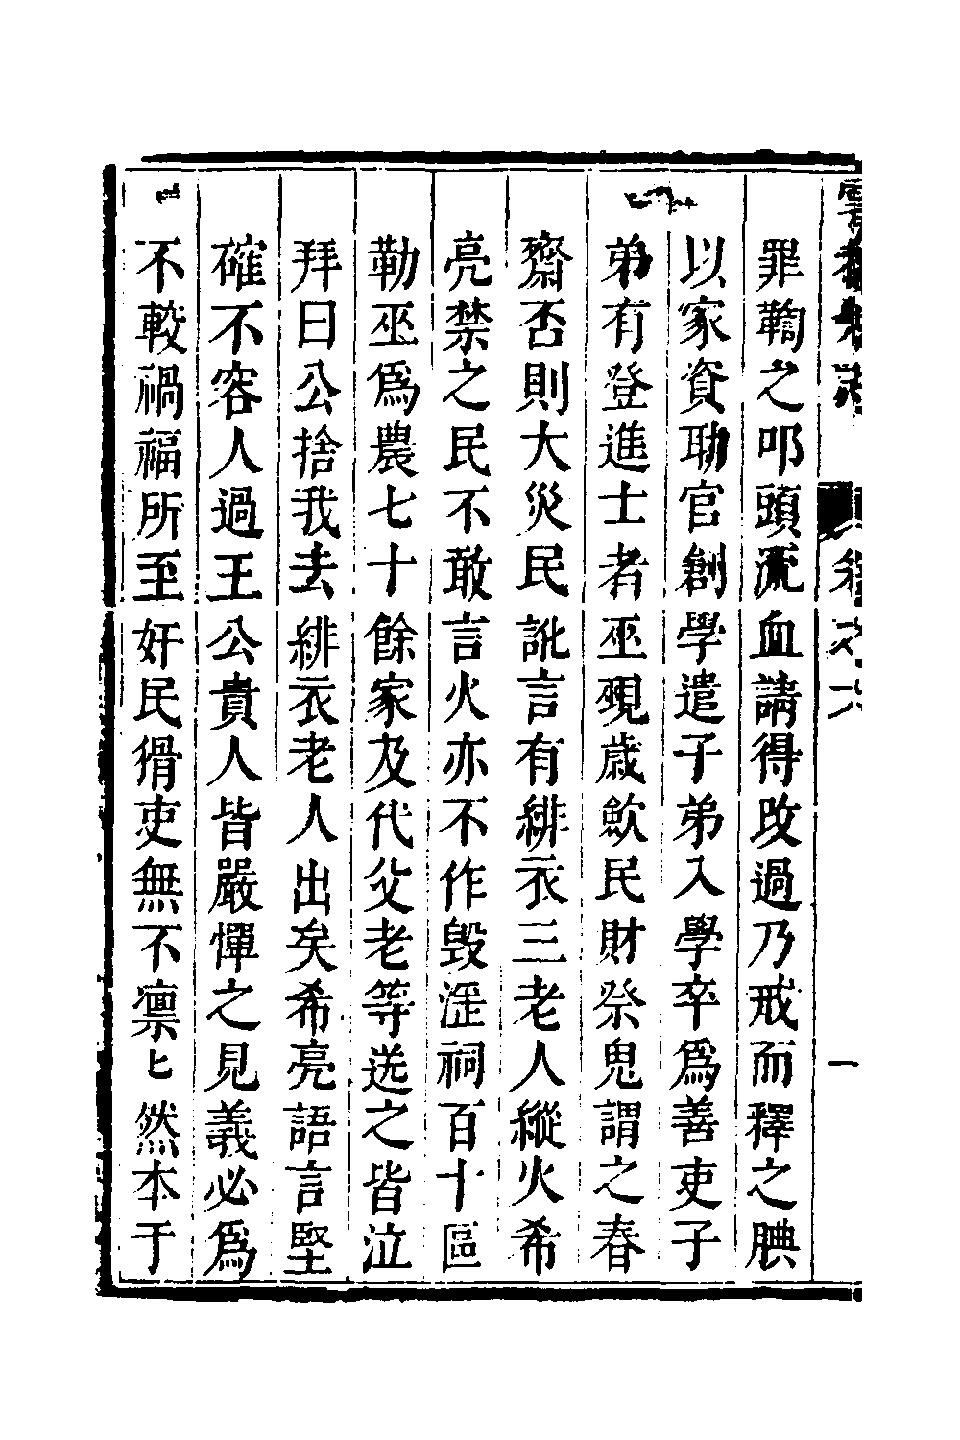 罪鞫之叩頭流血請得改過乃戒而釋之腆
以家資助官創學遣子弟入學卒爲善吏子
弟有登進士者巫覡歳歛民財祭鬼謂之春
齋否則大災民訛言有緋衣三老人縱火希
亮禁之民不敢言火亦不作毁淫祠百十區
勒巫爲農七十餘家及代父老等送之皆泣
拜曰公捨我去緋衣老人出矣希亮語言堅
確不容人過王公貴人皆嚴憚之見義必爲
不較禍福所至奸民猾吏無不凛匕然本于
卷之六
一